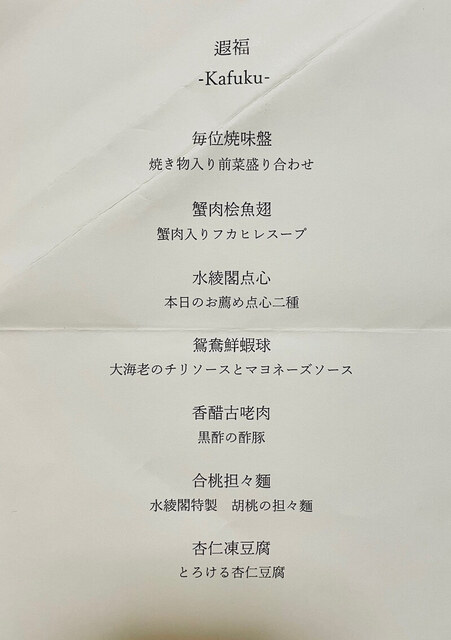 遐福
-Kafuku-
毎位焼味盤
焼き物入り前菜盛り合わせ
蟹肉桧魚翅
蟹肉入りフカヒレスープ
水綾閣点心
本日のお薦め点心二種
鴛鴦鮮蝦球
大海老のチリソースとマヨネーズソース
香醋古咾肉
黒酢の酢豚
合桃担々麵
水綾閣特製　胡桃の担々麵
杏仁凍豆腐
とろける杏仁豆腐